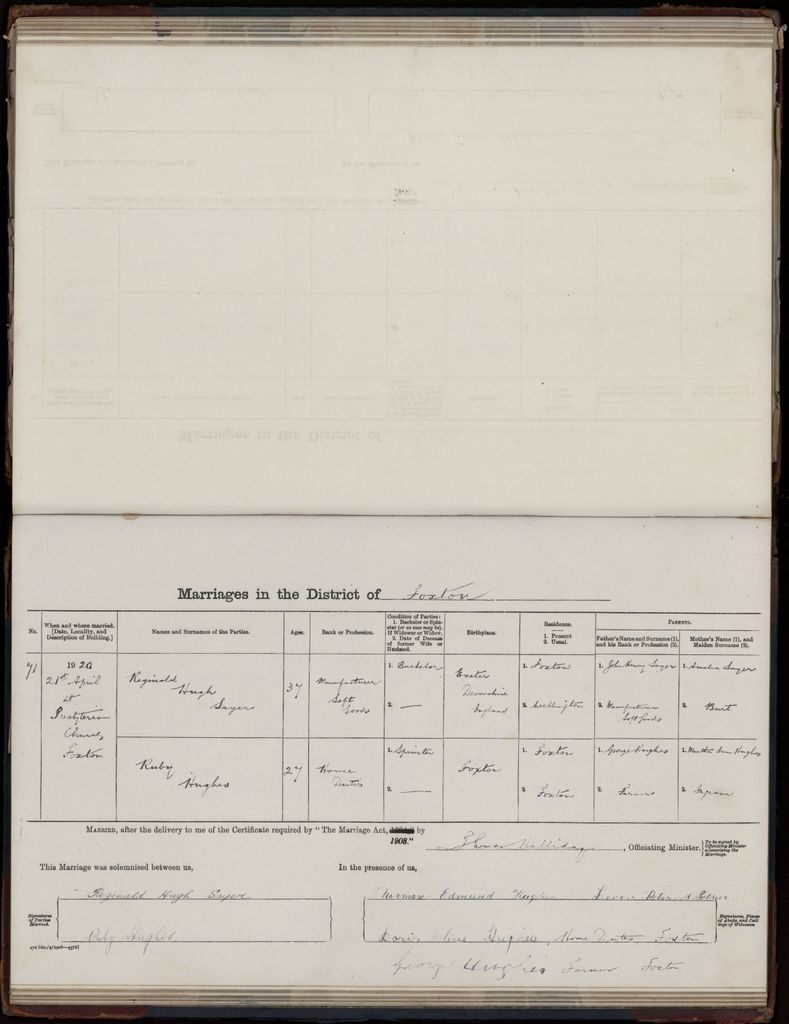 Marriages in the District of Foxton
No.
When and where married.
[Date, Locality, and
Description of Building.]
Names and Surnames of the Parties.
Ages.
Rank or Profession.
Condition of Parties:
1. Bachelor or Spin-
ster (or as case may be).
If Widower or Widow,
2. Date of Decease
of former Wife or
Husband.
Birthplace.
Residence.
1. Present
2. Usual.
PARENTS.
Father's Name and Surname (1),
and his Rank or Profession (2).
Mother's Name (1), and
Maiden Surname (2).
71
1920
21st April
at
Presbyterian
Church,
Foxton
Reginald
Hugh
Sayer
37
Manufacturer
Soft
Goods
1. Bachelor
2. —
Exeter
Devonshire
England
1. Foxton
2. Wellington
1. John Henry Sayer
2. Manufacturer
Soft Goods
1. Amelia Sayer
2. Burt
Ruby
Hughes
27
Home
Duties
1. Spinster
2. —
Foxton
1. Foxton
2. Foxton
1. George Hughes
2. Farmer
1. Hughes
2. Ingram
MARRIED, after the delivery to me of the Certificate required by "The Marriage Act, by
1908."
Thomas Halliday, Officiating Minister.
[To be signed by
Officiating Minister
solemnizing the
Marriage.
This Marriage was solemnised between us,
In the presence of us,
Signatures
of Parties
Married.
Reginald Hugh Sayer
Ruby Hughes
Norman Edmund Hughes
Doris Hughes, Home Duties, Foxton
George Hughes Farmer Foxton
Signatures, Places
of Abode, and Call-
ings of Witnesses.